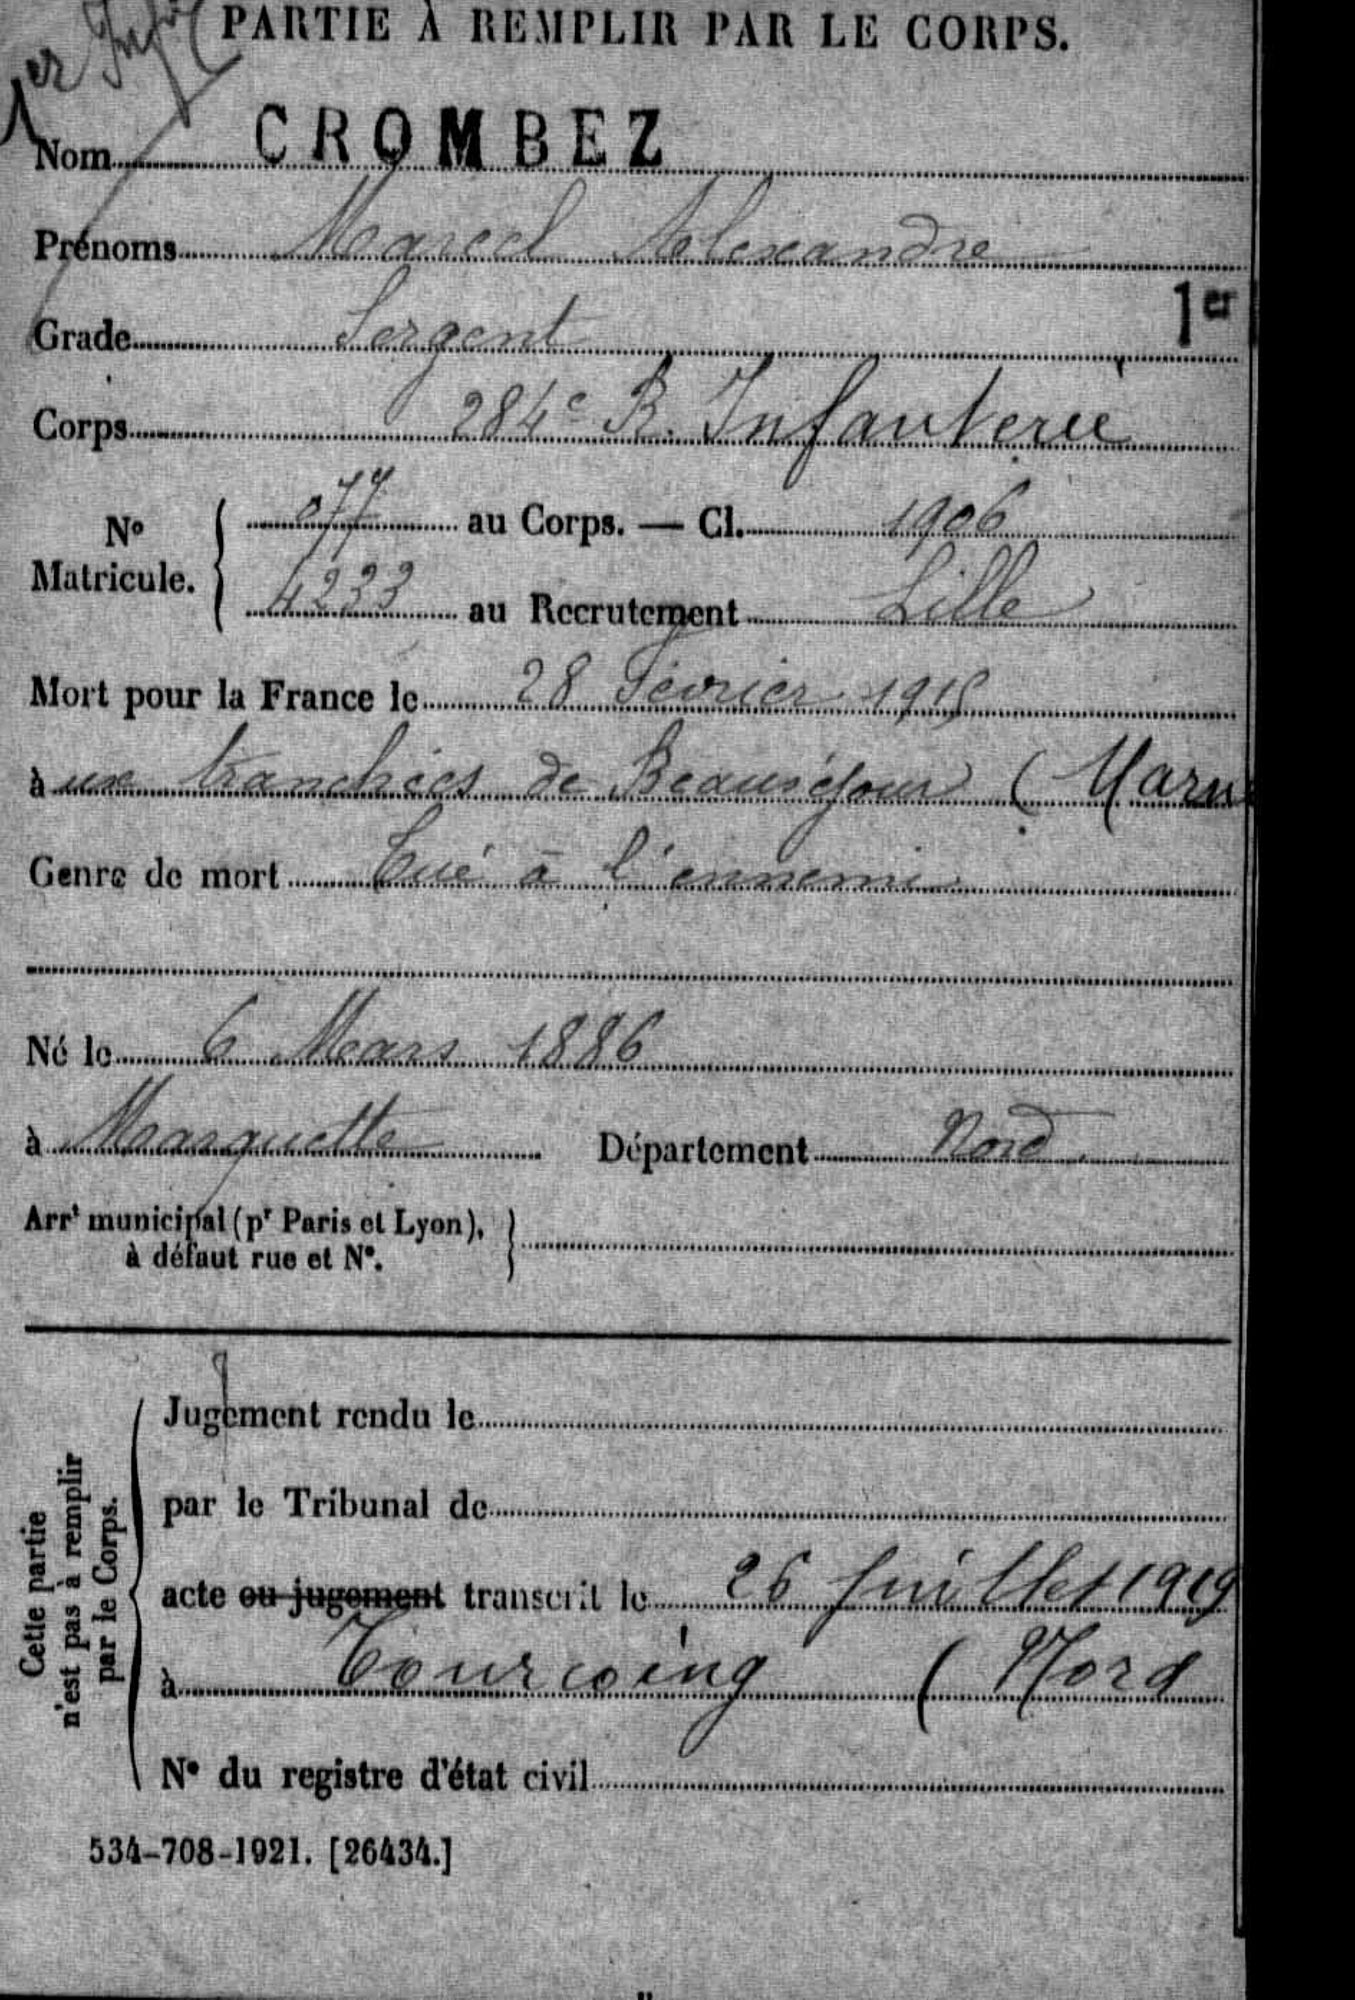 PARTIE À REMPLIR PAR LE CORPS.
1er Infie
Nom CROMBEZ
Prénoms Marcel Alexandre
1er
Grade Sergent
Corps 284e R. Infanterie
No Matricule. { 077 au Corps. — Cl. 1906
4233 au Recrutement Lille
Mort pour la France le 28 Février 1915
à ux tranchées de Beauséjour (Marne
Genre de mort Tué à l'ennemi
Né le 6 Mars 1886
à Marquette Département Nord
Arrt municipal (pr Paris et Lyon), }
à défaut rue et No.
Cette partie
n'est pas à remplir
par le Corps.
Jugement rendu le
par le Tribunal de
acte ou jugement transcrit le 26 juillet 1919
à Tourcoing (Nord
No du registre d'état civil
534-708-1921. [26434.]